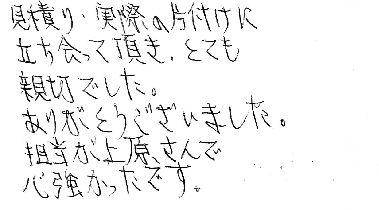 見積り・実際の片付けに
立ち会って頂き、とても
親切でした。
ありがとうございました。
担当が上原さんで
心強かったです。